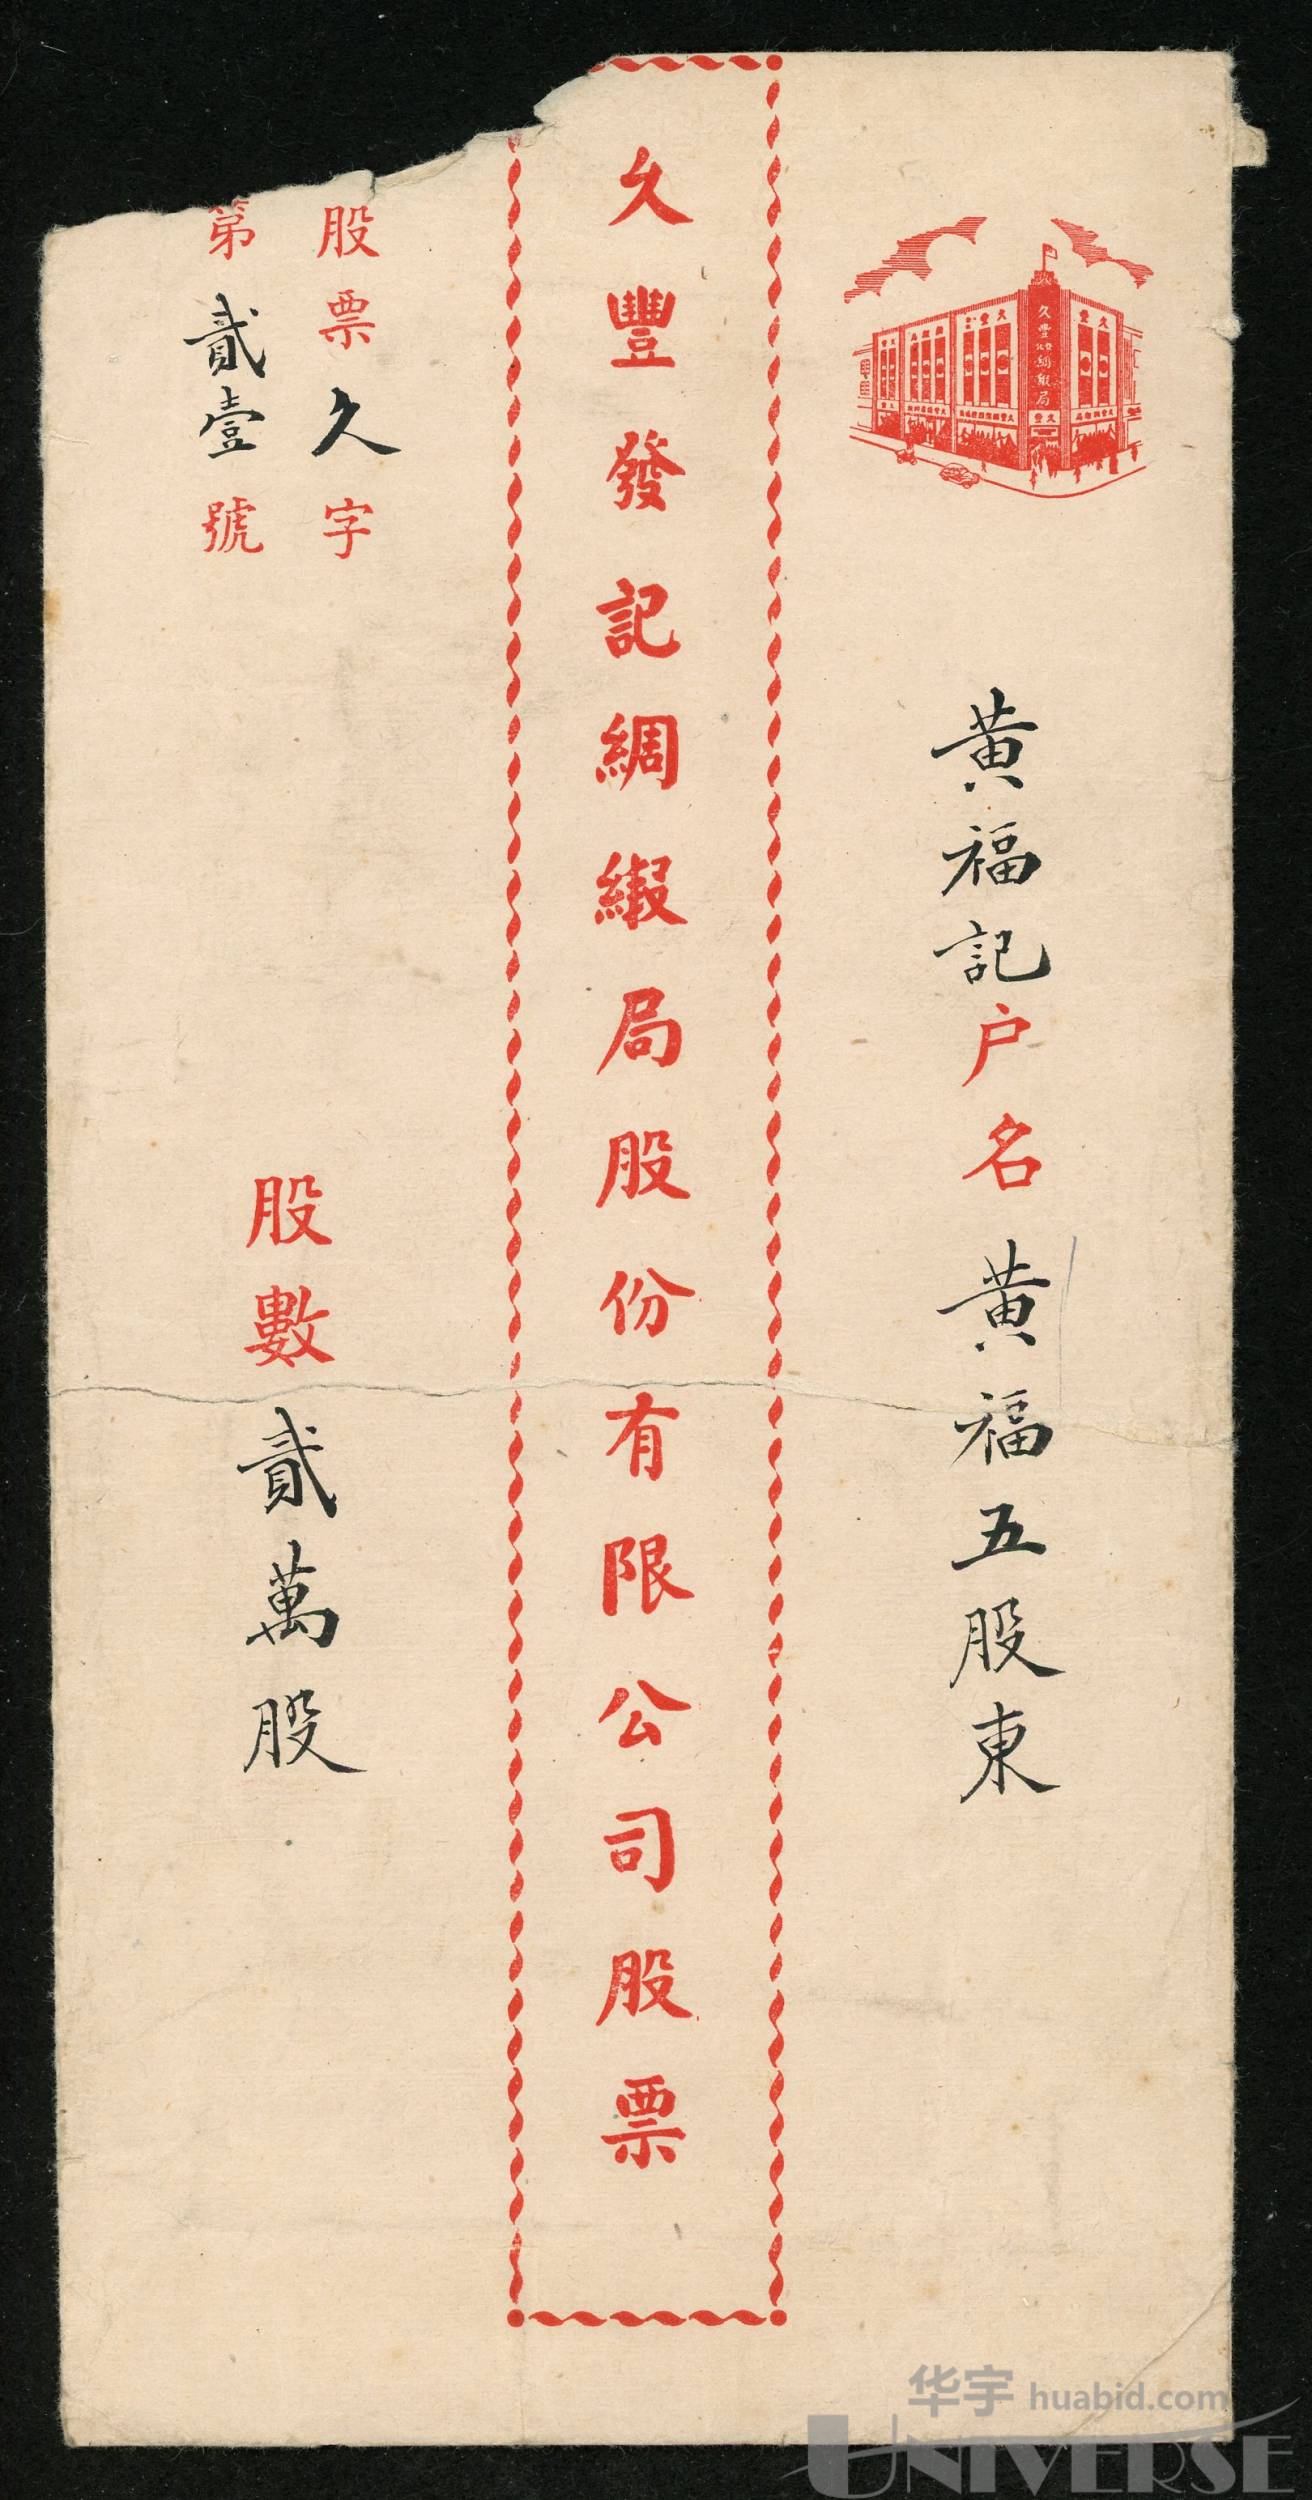 久豐綢緞局
黄福記户名黄福五股東
久豐發記綢緞局股份有限公司股票
股票久字
第貳壹號
股數貳萬股
华宇 huabid.com
UNIVERSE